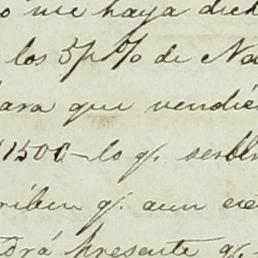 me haya dich
los 3p% de Na
para que vendié
1500 - lo q.
riben q. aun
drá presente q.